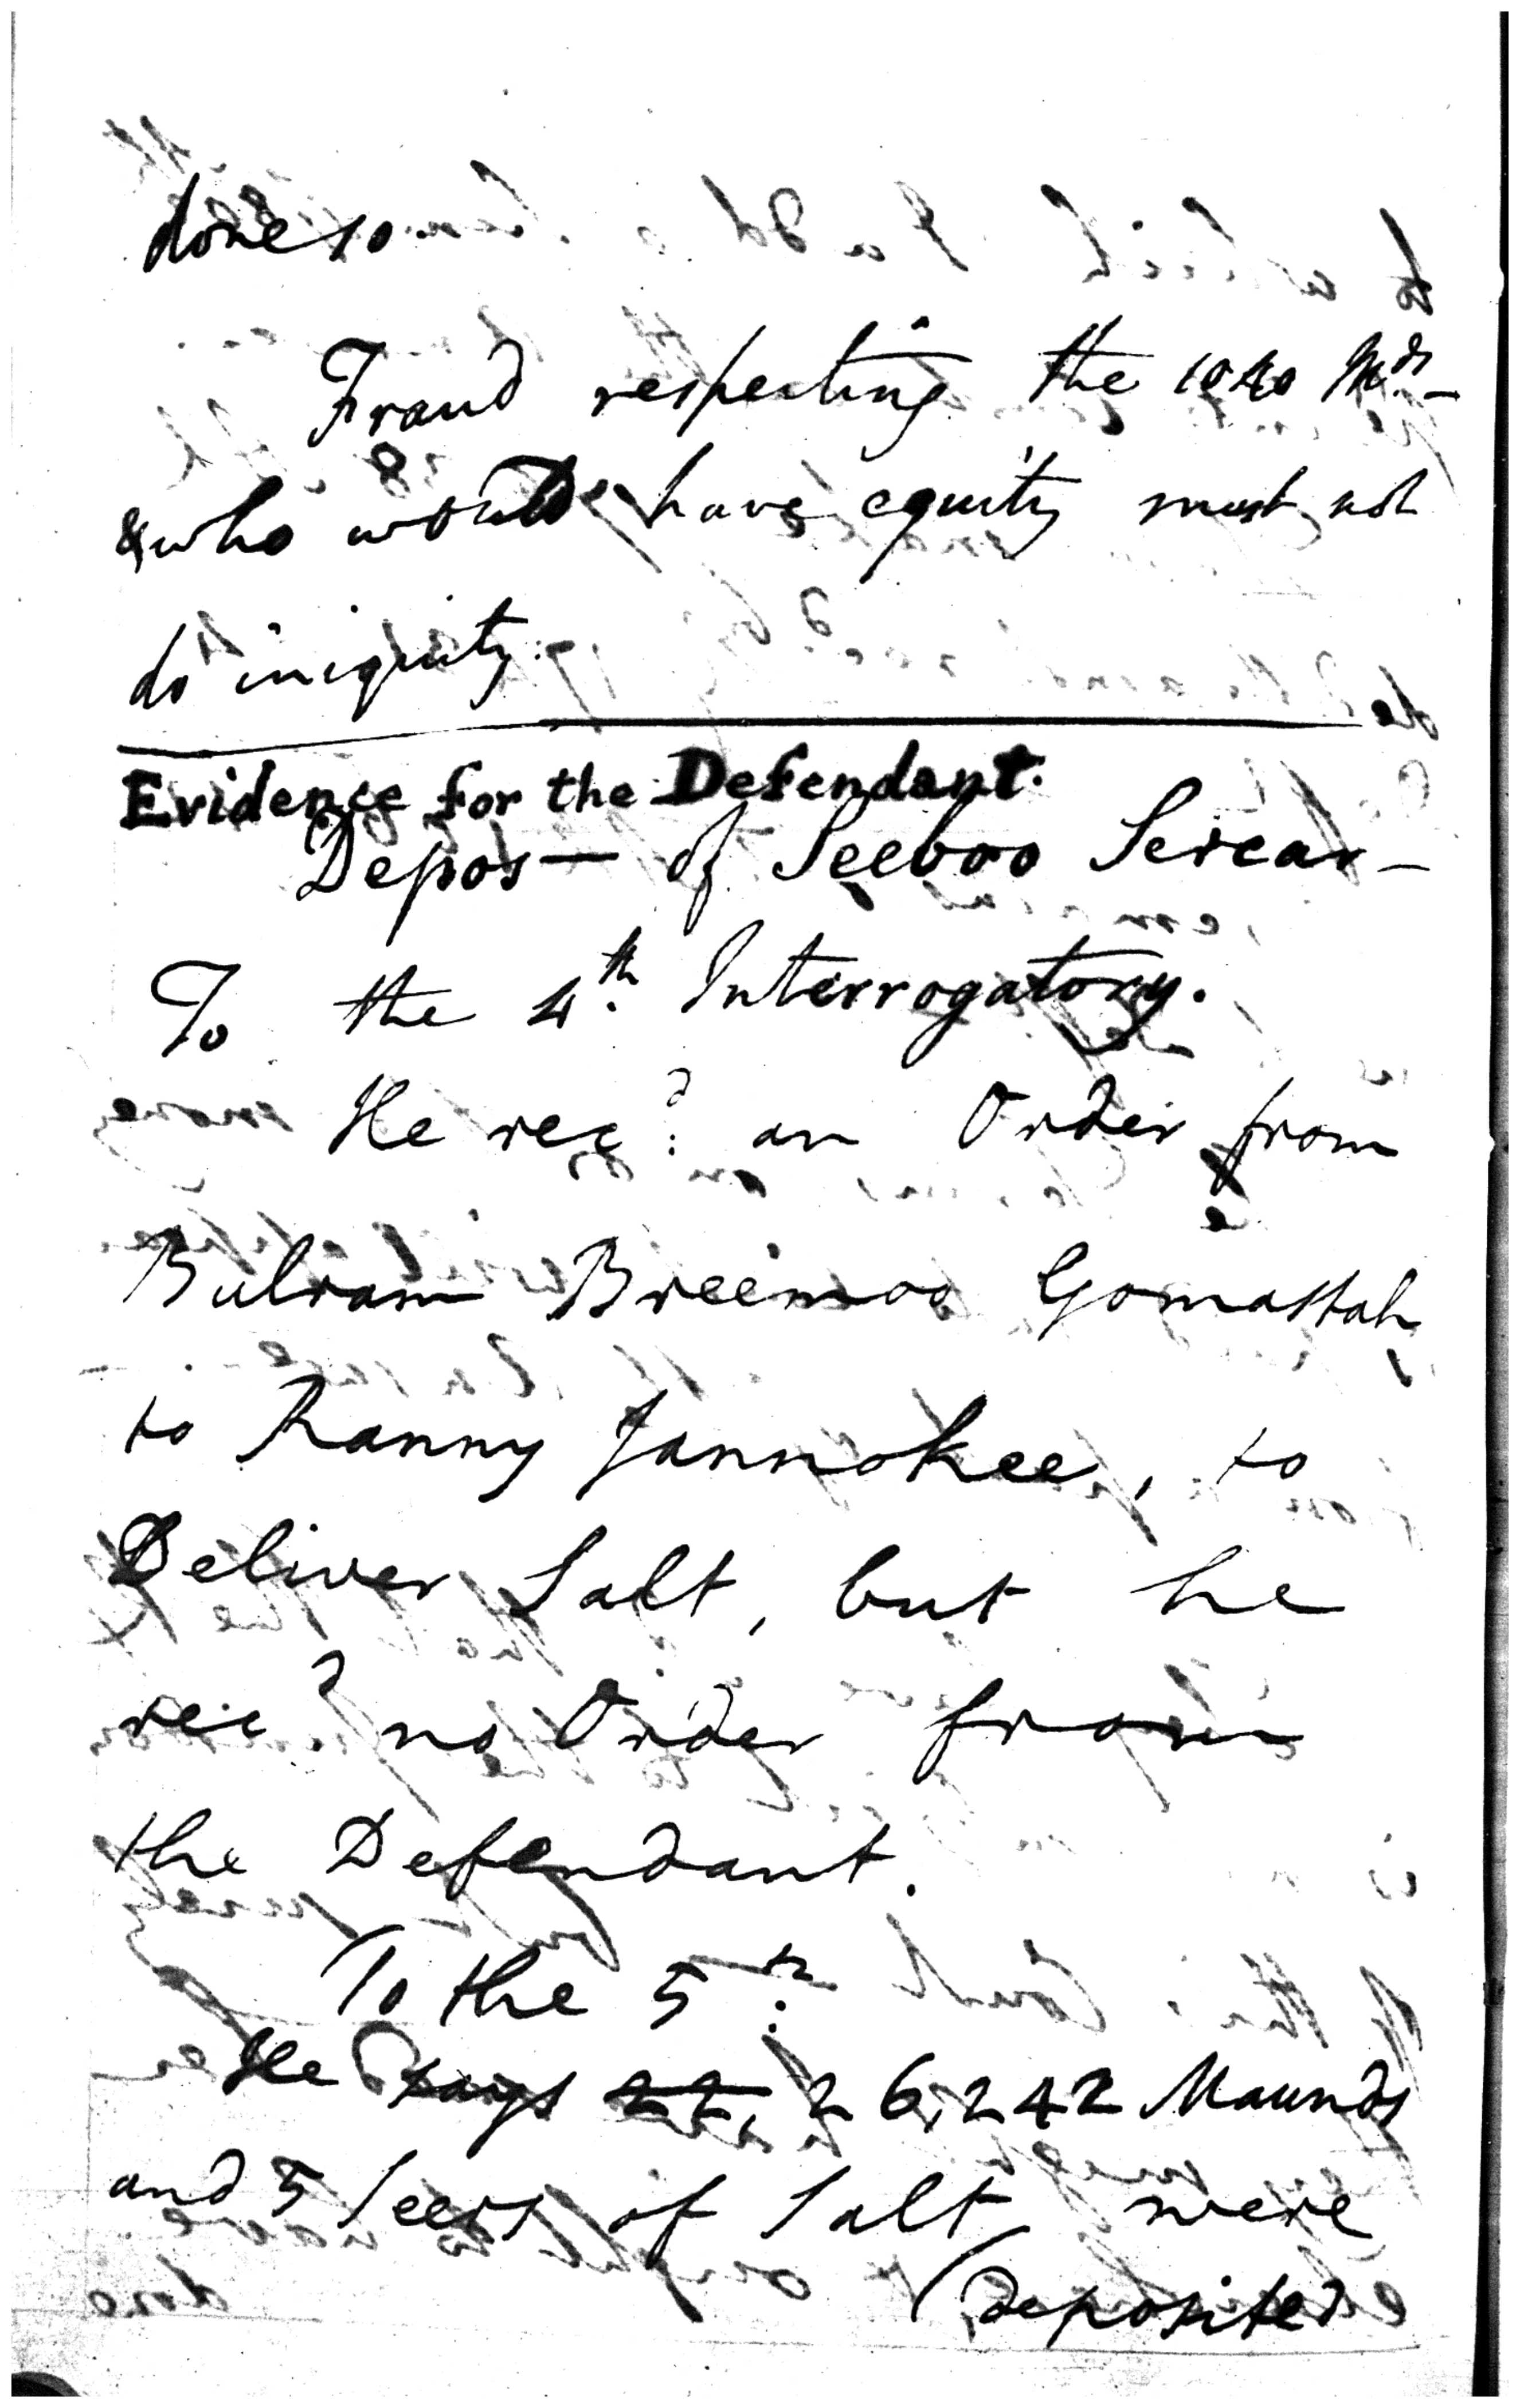 done so.
Fraud respecting the 1040 Mds –
& who would have equity must not
do iniquity.
Evidence for the Defendant.
Depos— of Seeboo Sercar –
To the 4th Interrogatory.
He recd an Order from
Bulram Breemoo Gomastah
to Ranny Jannokee, to
Deliver Salt, but he
recd no Order from
the Defendant.
To the 5th
He says 22, 26,242 Maunds
and 5 Seers of Salt were
(Deposited